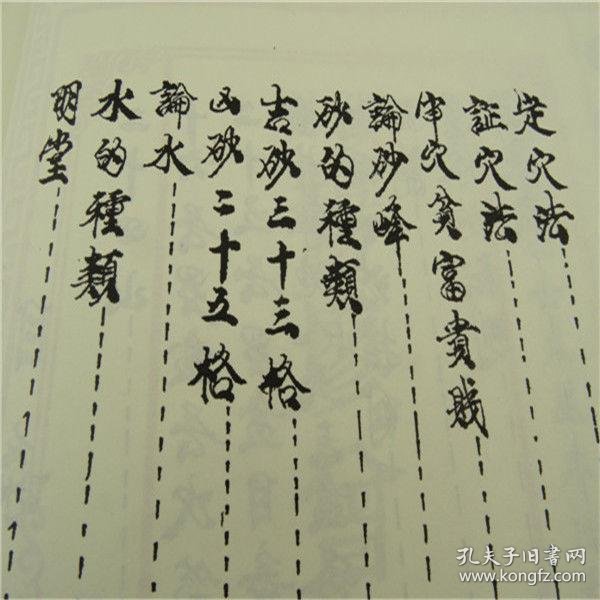 定穴法
証穴法
审穴贫富貴贱
論砂峰
砂的種類
吉砂三十三格
凶砂二十五格
論水
水的種類
明堂
孔夫子旧书网
www.kongfz.com